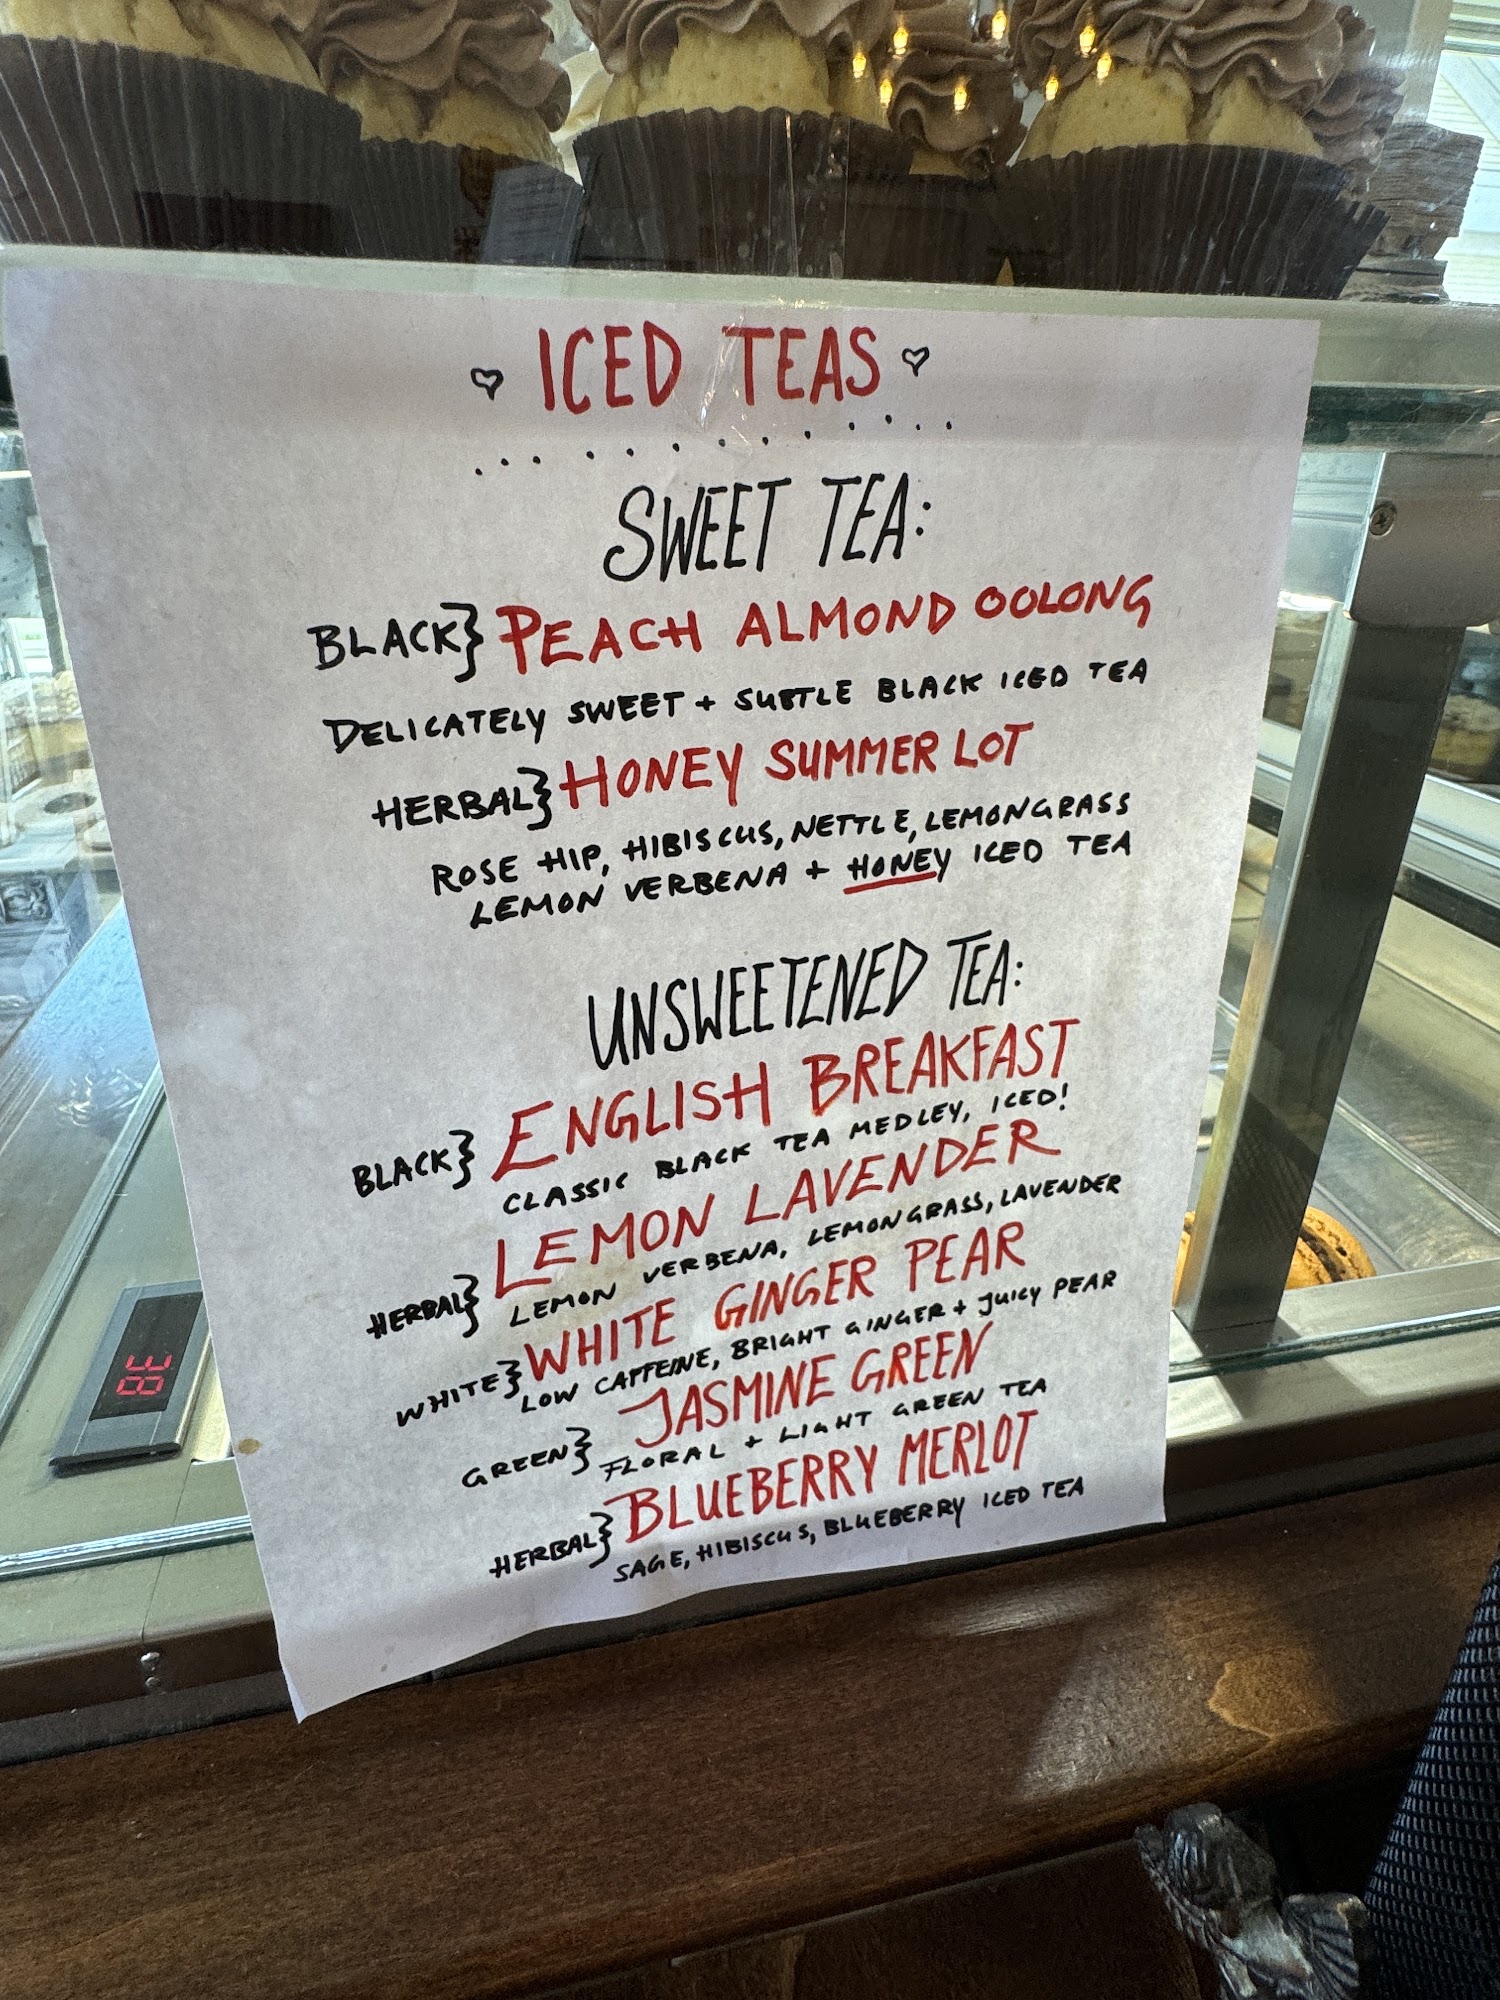 ♡ ICED TEAS ♡
SWEET TEA:
BLACK} PEACH ALMOND OOLONG
DELICATELY SWEET + SUBTLE BLACK ICED TEA
HERBAL} HONEY SUMMER LOT
ROSE HIP, HIBISCUS, NETTLE, LEMONGRASS
LEMON VERBENA + HONEY ICED TEA
UNSWEETENED TEA:
BLACK} ENGLISH BREAKFAST
CLASSIC BLACK TEA MEDLEY, ICED!
HERBAL} LEMON LAVENDER
LEMON VERBENA, LEMONGRASS, LAVENDER
WHITE} WHITE GINGER PEAR
LOW CAFFEINE, BRIGHT GINGER + JUICY PEAR
GREEN} JASMINE GREEN
FLORAL + LIGHT GREEN TEA
HERBAL} BLUEBERRY MERLOT
SAGE, HIBISCUS, BLUEBERRY ICED TEA